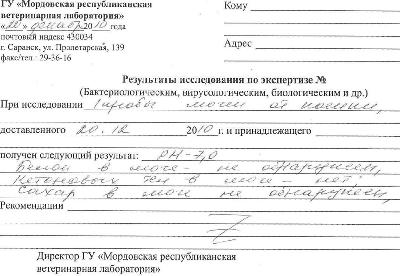 ГУ «Мордовская республиканская
ветеринарная лаборатория»
Кому
«20» декабря 2010 года
почтовый индекс 430034
г. Саранск, ул. Пролетарская, 139
Адрес
факс/тел.: 29-36-16
Результаты исследования по экспертизе №
(Бактериологическим, вирусологическим, биологическим и др.)
При исследовании мочи от
доставленного 20.12 2010 г. и принадлежащего
получен следующий результат: рН-7,0
Белок в моче - не обнаружен,
Кетоновых тел в моче - нет,
Сахар в моче не обнаружен,
Рекомендации
Директор ГУ «Мордовская республиканская
ветеринарная лаборатория»